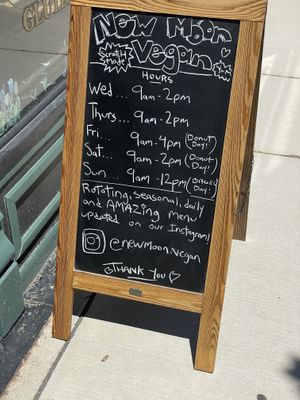 New Moon
Vegan
Scratch
Made
HOURS
Wed... 9am-2pm
Thurs... 9am-2pm
Fri... 9am-4pm (Donut Day!)
Sat... 9am-2pm (Donut Day!)
Sun... 9am-12pm
Rotating, seasonal, daily
and AMAZING menu
updated on our Instagram!
@newmoon.vegan
THANK YOU